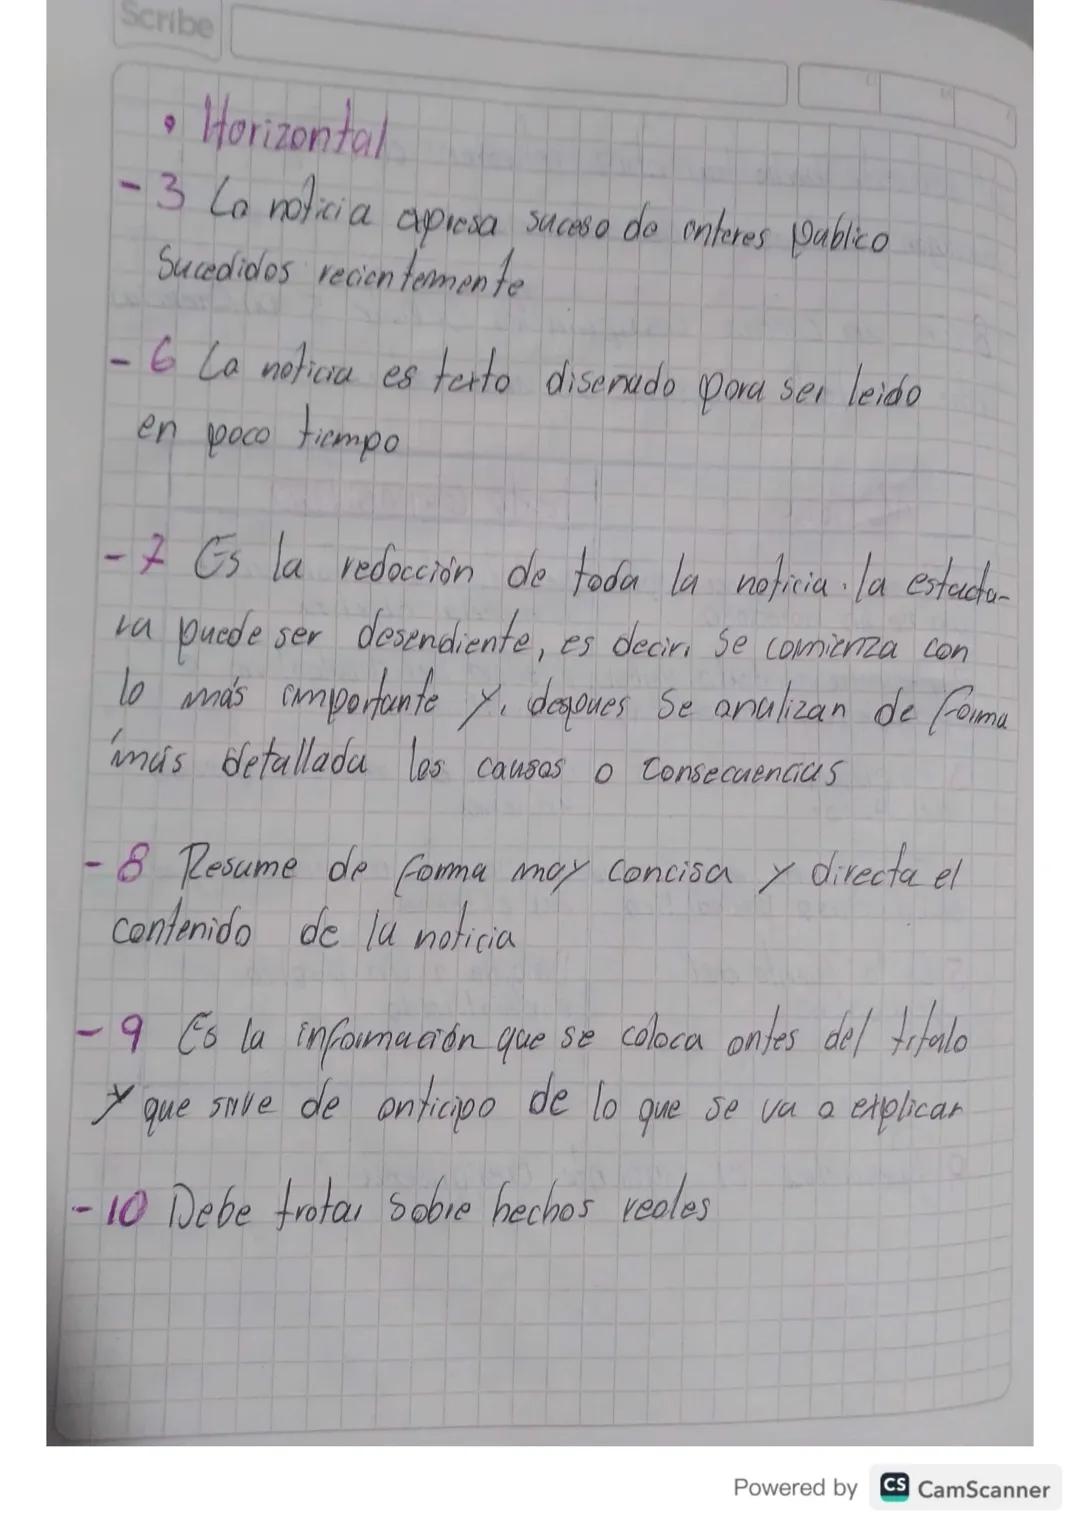 Scribe
• Horizontal
- 3 La noticia expresa suceso de enteres publico
Sucedidos recientemente
- 6 La noticia es texto disenado para ser leido
en poco tiempo
- 7 Es la redacción de toda la noticia. la estuctu-
ra puede ser desendiente, es decir, se comienza con
lo más importante y, despues se analizan de forma
más detallada las causas o consecuencias
- 8 Resume de forma muy concisa y directa el
contenido de la noticia
- 9 Es la información que se coloca antes del titulo
y que sirve de anticipo de lo que se va a explicar
- 10 Debe tratar sobre hechos reales
Powered by CS CamScanner